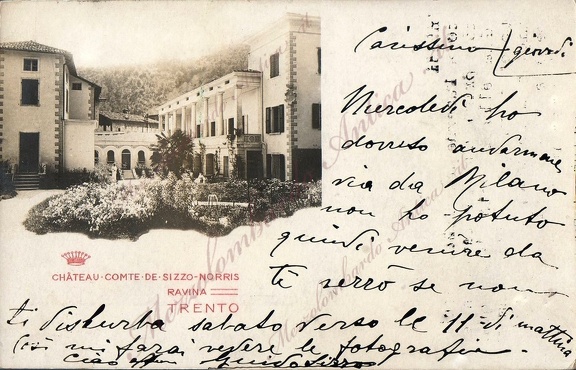 Carissimo (giovedi
Mercoledi ho
dovuto andarmene
via da Milano
non ho potuto
quindi venire da
te verrò se non
ti disturba sabato verso le 11 di mattina
Così mi farai vedere le fotografie.
ciao Guido Sizzo
CHÂTEAU·COMTE·DE·SIZZO·NORRIS
RAVINA
TRENTO